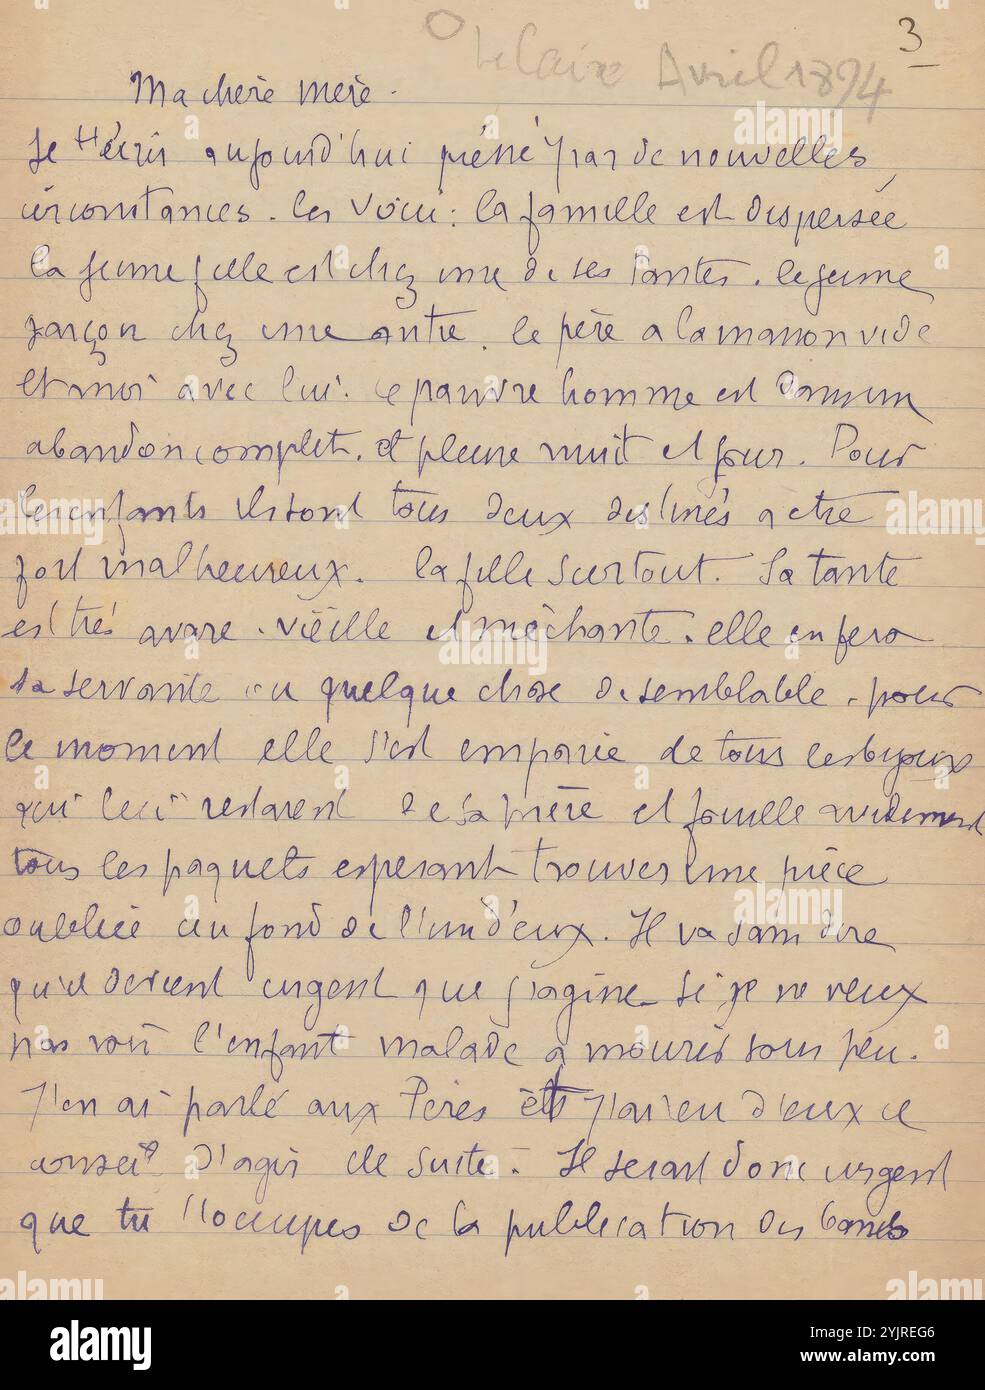 3
le Caire Avril 1894
Ma chère mère.
Je t'écris aujourd'hui pressé par de nouvelles
circonstances. les voici : la famille est dispersée
la jeune fille est chez une de ses tantes. le jeune
garçon chez une autre. le père a la maison vide
et moi avec lui. ce pauvre homme est dans un
abandon complet. et pleure nuit et jour. Pour
les enfants ils sont tous deux destinés a etre
fort malheureux. la fille surtout. Sa tante
est très avare. vieille et méchante. elle en fera
sa servante ou quelque chose de semblable. pour
le moment elle s'est emparée de tous les byoux
qui lui restaient de sa mère et fouille avidement
tous les paquets esperant trouver une pièce
oubliée au fond de l'un d'eux. Il va sans dire
qu'il devient urgent que j'agine si je ne veux
pas voir l'enfant malade a mourir sous peu.
J'en ai parlé aux Pères et j'ai eu d'eux le
conseil d'agir de suite. Il serait donc urgent
que tu t'occupes de la publication des bancs
alamy
Image ID: 2YJREG6
www.alamy.com